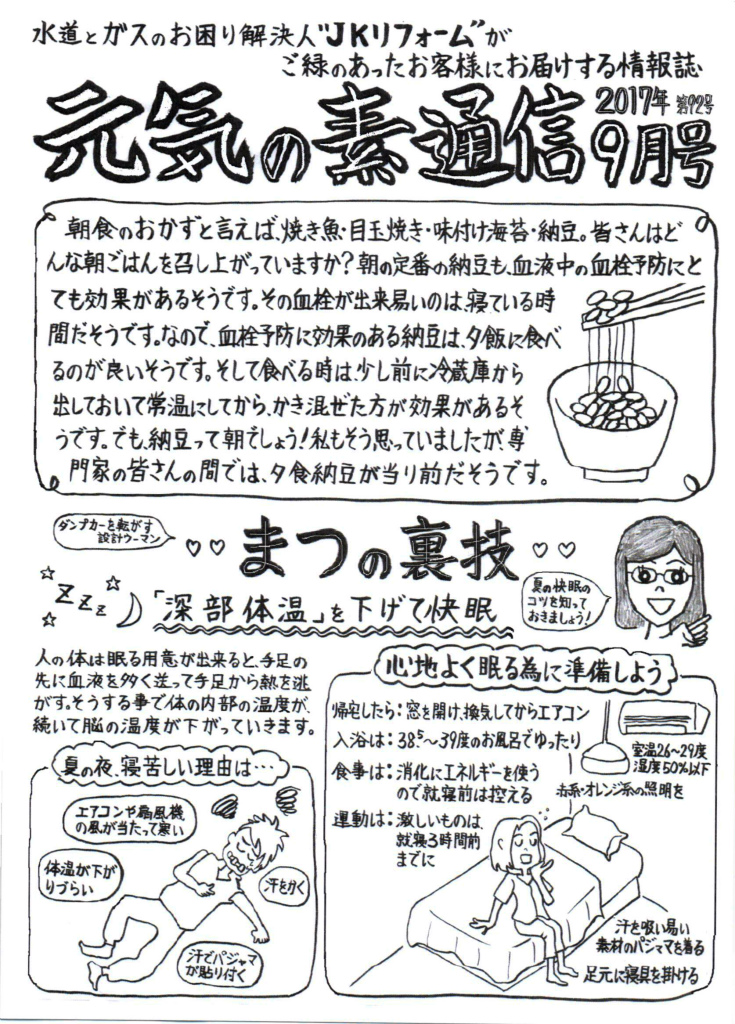 水道とガスのお困り解決人"JKリフォーム"が
ご縁のあったお客様にお届けする情報誌
元気の素通信
2017年 第92号
9月号
朝食のおかずと言えば、焼き魚・目玉焼き・味付け海苔・納豆。皆さんはど
んな朝ごはんを召し上がっていますか?朝の定番の納豆も、血液中の血栓予防にと
ても効果があるそうです。その血栓が出来易いのは、寝ている時
間だそうです。なので、血栓予防に効果のある納豆は、夕飯に食べ
るのが良いそうです。そして食べる時は、少し前に冷蔵庫から
出しておいて常温にしてから、かき混ぜた方が効果があるそ
うです。でも、納豆って朝でしょう!私もそう思っていましたが、専
門家の皆さんの間では、夕食納豆が当り前だそうです。
ダンプカーを転がす
設計ウーマン
♡♡まつの裏技♡♡
ZZZ
「深部体温」を下げて快眠
夏の快眠の
コツを知って
おきましょう!
人の体は眠る用意が出来ると、手足の
先に血液を多く送って手足から熱を逃
がす。そうする事で体の内部の温度が、
続いて脳の温度が下がっていきます。
夏の夜、寝苦しい理由は…
エアコンや扇風機
の風が当たって寒い
体温が下が
りづらい
汗をかく
汗でパジャマ
が貼り付く
心地よく眠る為に準備しよう
帰宅したら:窓を開け、換気してからエアコン
入浴は:38.5〜39度のお風呂でゆったり
食事は:消化にエネルギーを使う
ので就寝前は控える
運動は:激しいものは、
就寝3時間前
までに
室温26〜29度
湿度50%以下
赤系・オレンジ系の照明を
汗を吸い易い
素材のパジャマを着る
足元に寝具を掛ける